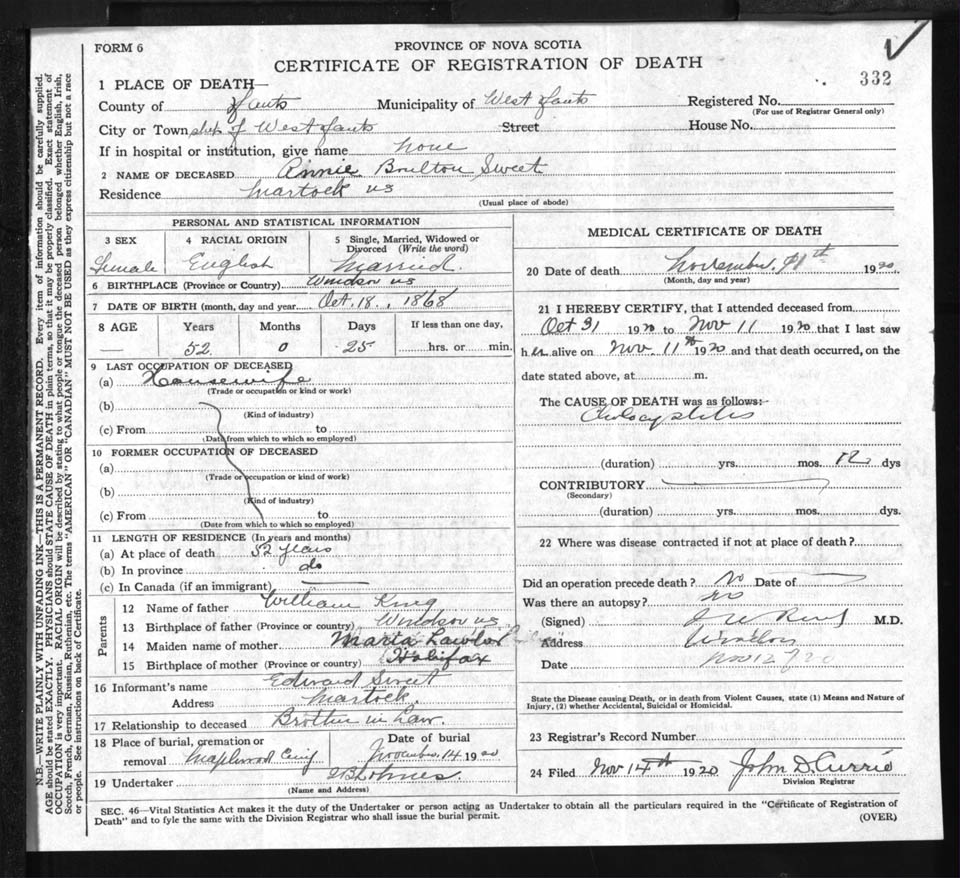 FORM 6
PROVINCE OF NOVA SCOTIA
CERTIFICATE OF REGISTRATION OF DEATH
332
1 PLACE OF DEATH—
County of Hants Municipality of West Hants Registered No.
(For use of Registrar General only)
City or Township of West Hants Street House No.
If in hospital or institution, give name none
2 NAME OF DECEASED Annie Boulton Sweet
Residence Martock NS
(Usual place of abode)
PERSONAL AND STATISTICAL INFORMATION
3 SEX 4 RACIAL ORIGIN 5 Single, Married, Widowed or Divorced (Write the word)
Female English Married.
6 BIRTHPLACE (Province or Country) Windsor NS
7 DATE OF BIRTH (month, day and year) Oct. 18., 1868
8 AGE Years Months Days If less than one day,
— 52. 0 25 hrs. or min.
9 LAST OCCUPATION OF DECEASED
(a) Housewife
(Trade or occupation or kind of work)
(b)
(Kind of industry)
(c) From to
(Date from which to which so employed)
10 FORMER OCCUPATION OF DECEASED
(a)
(Trade or occupation or kind of work)
(b)
(Kind of industry)
(c) From to
(Date from which to which so employed)
11 LENGTH OF RESIDENCE (In years and months)
(a) At place of death 52 years
(b) In province do
(c) In Canada (if an immigrant)
Parents
12 Name of father William King
13 Birthplace of father (Province or country) Windsor NS
14 Maiden name of mother Maria Lawlor
15 Birthplace of mother (Province or country) Halifax
16 Informant's name Edward Sweet
Address Martock.
17 Relationship to deceased Brother in Law.
18 Place of burial, cremation or removal Maplewood Cem'y Date of burial November 14 1920
19 Undertaker
(Name and Address)
MEDICAL CERTIFICATE OF DEATH
20 Date of death November 11th 1920
(Month, day and year)
21 I HEREBY CERTIFY, that I attended deceased from
Oct 31 1920 to Nov 11 1920 that I last saw
her alive on Nov. 11th 1920 and that death occurred, on the
date stated above, at m.
The CAUSE OF DEATH was as follows:-
Cholecystitis
(duration) yrs. mos. 12 dys
CONTRIBUTORY
(Secondary)
(duration) yrs. mos. dys.
22 Where was disease contracted if not at place of death?
Did an operation precede death? No Date of
Was there an autopsy? No
(Signed) M.D.
Address Windsor
Date Nov 12/20
State the Disease causing Death, or in death from Violent Causes, state (1) Means and Nature of
Injury, (2) whether Accidental, Suicidal or Homicidal.
23 Registrar's Record Number
24 Filed Nov 14th 1920 John D Currie
Division Registrar
SEC. 46—Vital Statistics Act makes it the duty of the Undertaker or person acting as Undertaker to obtain all the particulars required in the "Certificate of Registration of
Death" and to fyle the same with the Division Registrar who shall issue the burial permit.
(OVER)
N.B.—WRITE PLAINLY WITH UNFADING INK—THIS IS A PERMANENT RECORD. Every item of information should be carefully supplied.
AGE should be stated EXACTLY. PHYSICIANS should STATE CAUSE OF DEATH in plain terms, so that it may be properly classified. Exact statement of
OCCUPATION is very important. RACIAL ORIGIN will be described by stating to what people or tongue the deceased person belonged whether English, Irish,
Scotch, French, German, Russian, Ruthenian, etc. The terms "AMERICAN" OR "CANADIAN" MUST NOT BE USED as they express citizenship but not a race
or people. See instructions on back of Certificate.